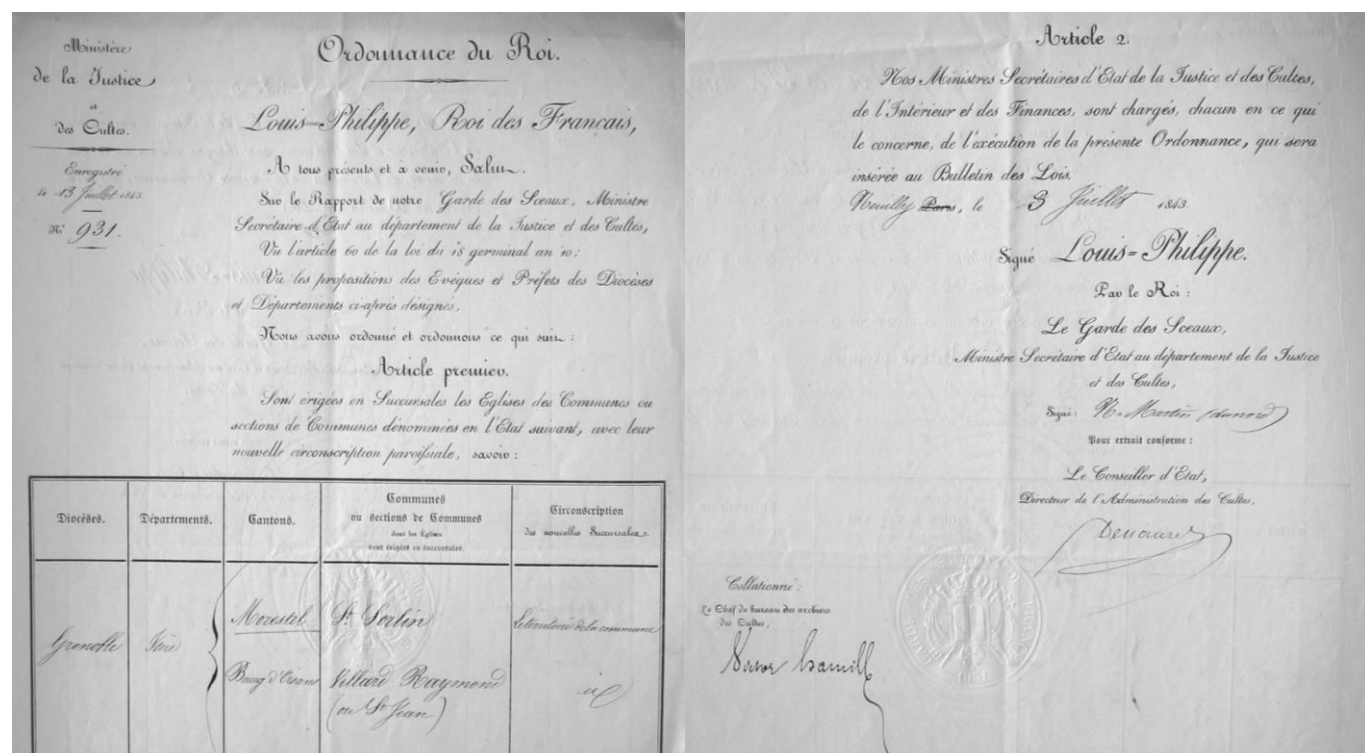 Ministère
de la Justice
et
des Cultes.
Enregistré
le 13 Juillet 1843.
N° 931.
Ordonnance du Roi.
Louis-Philippe, Roi des Français,
A tous présents et à venir, Salut.
Sur le Rapport de notre Garde des Sceaux, Ministre
Secrétaire d'Etat au département de la Justice et des Cultes,
Vu l'article 60 de la loi du 18 germinal an 10;
Vu les propositions des Evêques et Préfets des Diocèses
et Départements ci-après désignés,
Nous avons ordonné et ordonnons ce qui suit :
Article premier.
Sont érigées en Succursales les Eglises des Communes ou
sections de Communes dénommées en l'Etat suivant, avec leur
nouvelle circonscription paroissiale, savoir :
Diocèses.
Départements.
Cantons.
Communes
ou sections de Communes
dont les Eglises
sont érigées en succursales.
Circonscription
des nouvelles Succursales.
Grenoble
Isère
Morestel
St Sorlin
Le territoire de la commune
Bourg d'Oisans
Villard Raymond
(ou St Jean)
Article 2.
Nos Ministres Secrétaires d'Etat de la Justice et des Cultes,
de l'Intérieur et des Finances, sont chargés, chacun en ce qui
le concerne, de l'exécution de la présente Ordonnance, qui sera
insérée au Bulletin des Lois.
Neuilly Paris, le 3 Juillet 1843.
Signé Louis-Philippe.
Par le Roi :
Le Garde des Sceaux,
Ministre Secrétaire d'Etat au département de la Justice
et des Cultes,
Signé : N. Martin (du nord)
Pour extrait conforme :
Le Conseiller d'Etat,
Directeur de l'Administration des Cultes,
Collationné :
Le Chef de bureau des archives
des Cultes,